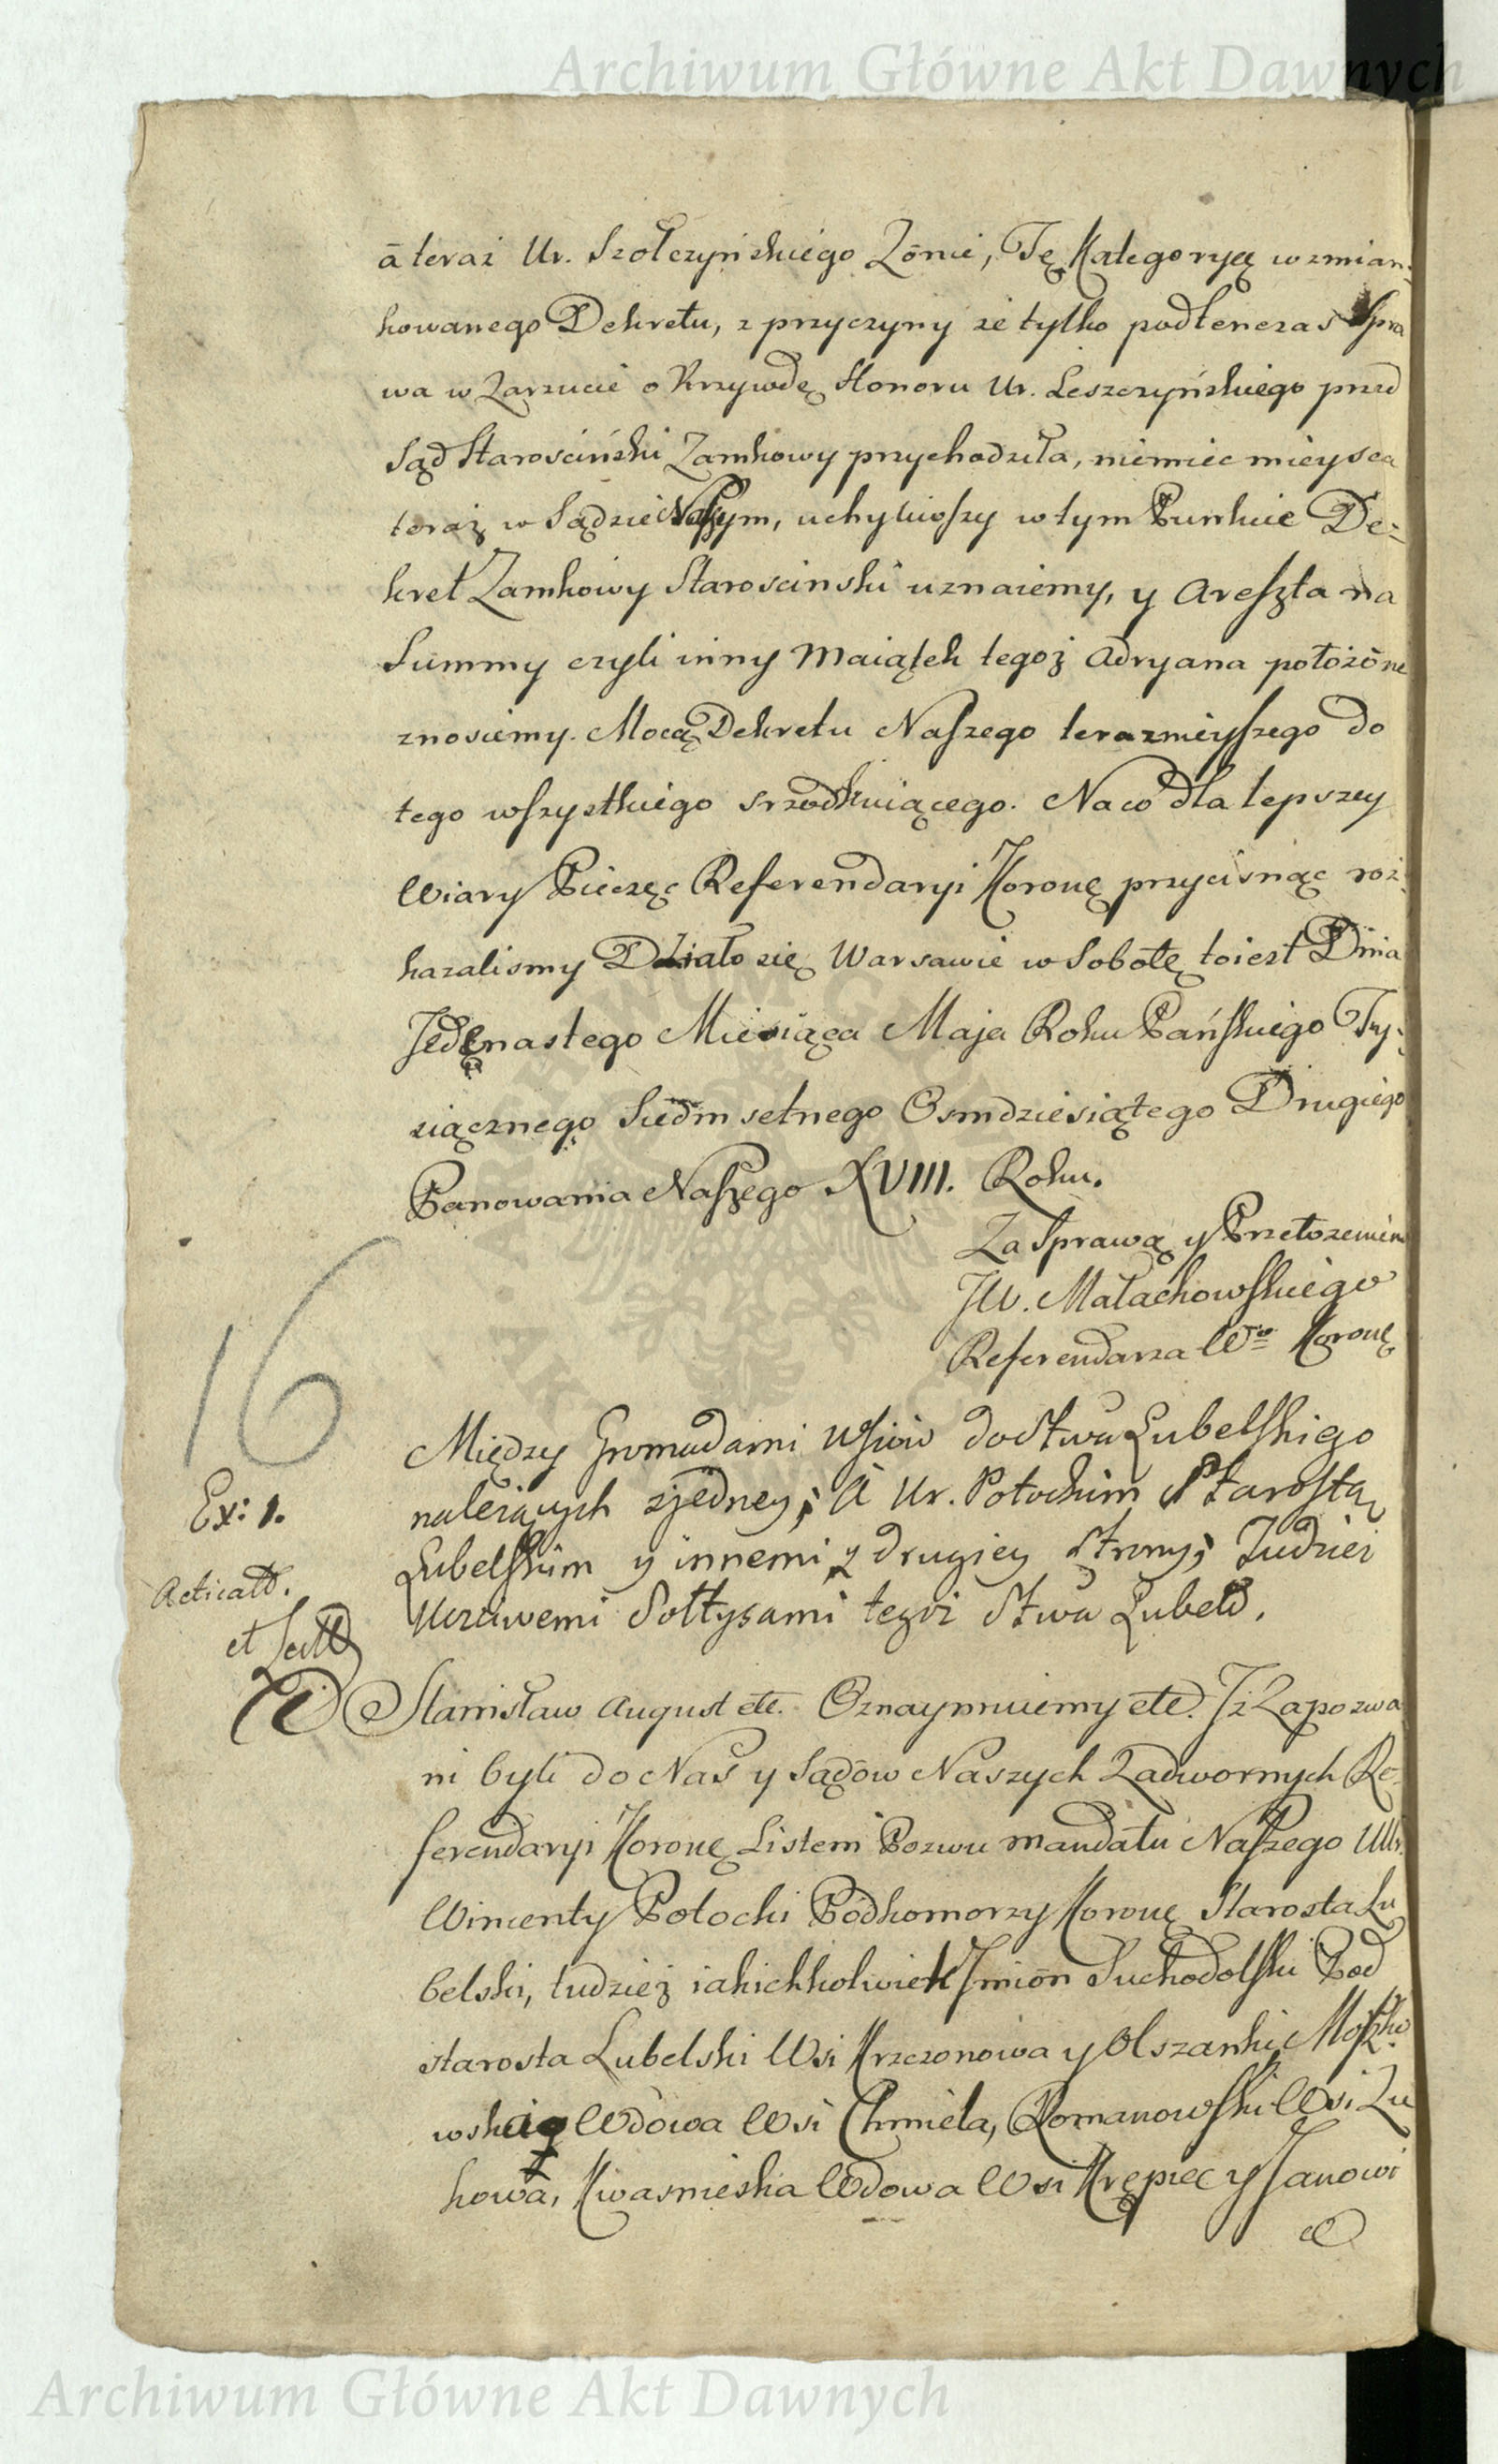 Archiwum Główne Akt Dawnych
a teraz Ur. Szołczyńskiego Zōnie, Tę Kategoryą wzmian:
kowanego Dekretu, z przyczyny ze tylko podtenczas Spra
wa w Zarzucie o Krzywdę Honoru Ur. Leszczyńskiego przed
Sąd Starosciński Zamkowy przychodziła, niemiec mieysca
teraz w Sądzie Naszym, uchyliwszy w tym Punkcie De=
kret Zamkowy Starosciński uznaiemy, y Areszta na
Summy czyli inny Maiątek tegoz Adryana położōne
znosiemy. Mocą Dekretu Naszego terazmieyszego do
tego wszystkiego srzodkuiącego. Na co dla lepszey
Wiary Pieczęc Referendaryi Koronę przycisnąc roz:
kazalismy Działo się Warsawie w Sobotę toiest Dnia
Jedęnastego Miesiąca Maja Roku Pańskiego Ty:
siącznego Siedmsetnego Osmdziesiątego Drugiego
Panowania Naszego XVIII. Roku.
Za Sprawą y Przełozeniem
JW. Małachowskiego
Referendarza Wgo Koronę
16
Między Gromadami Wsiów do Stwa Lubelskiego
należących zjedney; A Ur. Potockim Starostą
Ex: 1.
Lubelskim y innemi z drugiey Strony; Tudzież
Acticatt.
Uczciwemi Sołtysami tegoż Stwa Lubels.
et
Stanisław August etc. Oznaymuiemy etc. Iż Zapozwa
ni byli do Nas y Sądów Naszych Zadwornych Re
ferendaryi Koronę Listem Pozwu mandatu Naszego UUr.
Wincenty Potocki Podkomorzy Koronę Starosta Lu
belski, tudzież iakichkolwiek Imiōn Suchodolski Pod
starosta Lubelski Wsi Krzczonowa y Olszanki, Moszko
wska Wdowa Wsi Chmiela, Romanowski Wsi Zu
kowa, Kwasnieska Wdowa Wsi Krępiec y Janowi
ce
Archiwum Główne Akt Dawnych